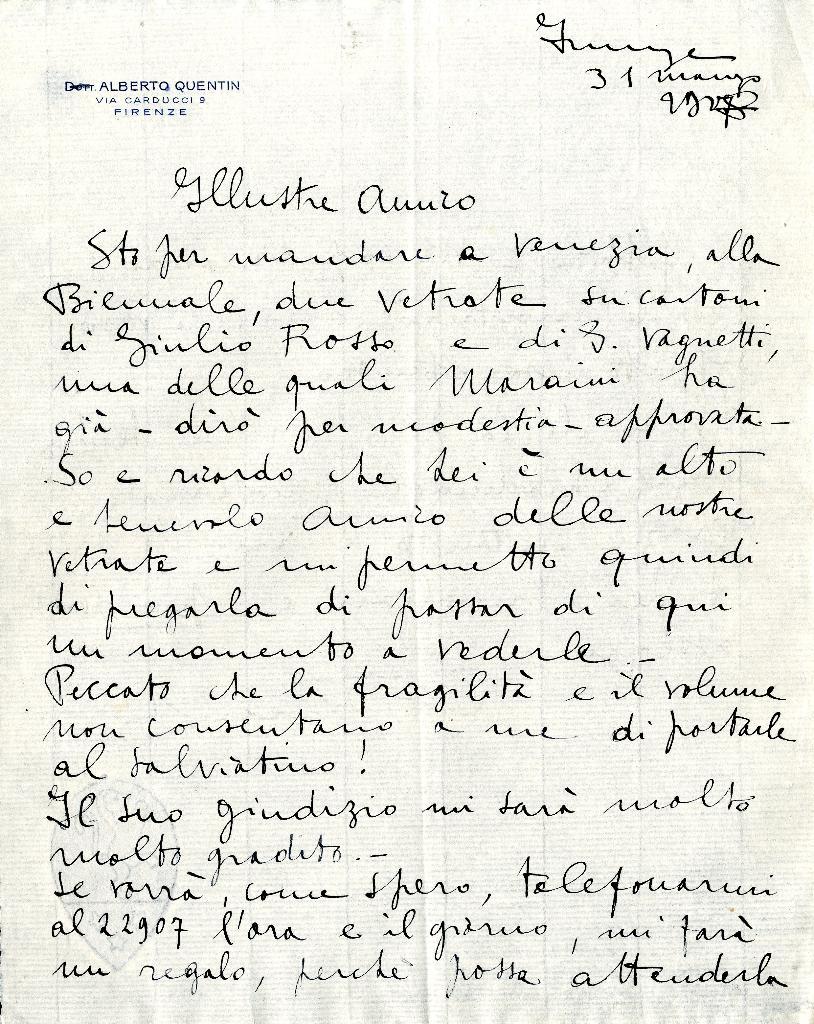 Dott. ALBERTO QUENTIN
VIA CARDUCCI 9
FIRENZE
Firenze
31 marzo
Illustre Amico
Sto per mandare a Venezia, alla
Biennale, due vetrate su cartoni
di Giulio Rosso e di G. Vagnetti,
una delle quali Maraini ha
già - dirò per modestia - approvata -
So e ricordo che Lei è un alto
e benevolo Amico delle nostre
vetrate e mi permetto quindi
di pregarla di passar di qui
un momento a vederle -
Peccato che la fragilità e il volume
non consentano a me di portarle
al Salviatino!
Il Suo giudizio mi sarà molto
molto gradito. -
Se vorrà, come spero, telefonarmi
al 22907 l'ora e il giorno, mi farà
un regalo, perchè possa attenderla